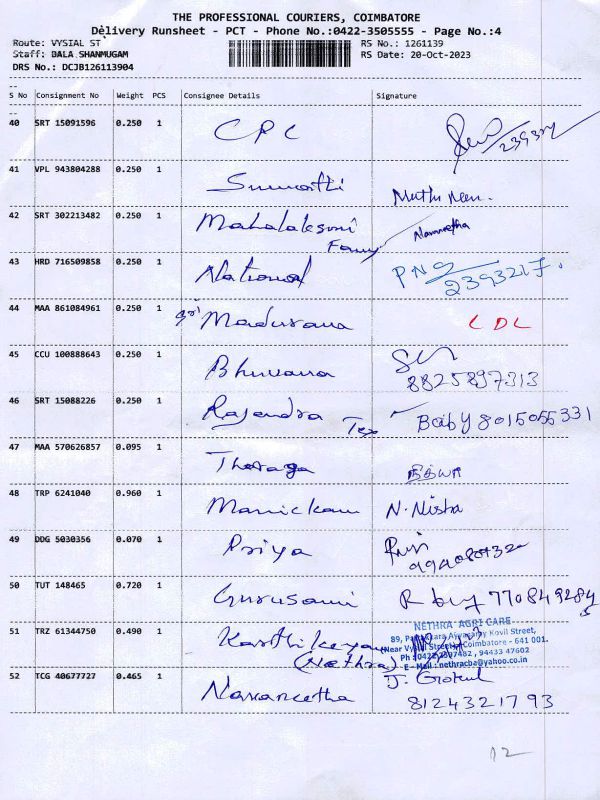 THE PROFESSIONAL COURIERS, COIMBATORE
Delivery Runsheet - PCT - Phone No.:0422-3505555 - Page No.:4
Route: VYSIAL ST RS No.: 1261139
Staff: BALA SHANMUGAM RS Date: 20-Oct-2023
DRS No.: DCJB126113904
S No Consignment No Weight PCS Consignee Details Signature
40 SRT 15091596 0.250 1 CPC
41 VPL 943804288 0.250 1 Sumathi Muthu
42 SRT 302213482 0.250 1 Mahalaksmi Navaneetha
Fancy
43 HRD 716509858 0.250 1 National PNG
2393217.
44 MAA 861084961 0.250 1 Madurana LDL
45 CCU 100888643 0.250 1 Bhuvana
8825897313
46 SRT 15088226 0.250 1 Rajendra Tex Baby 8015055331
47 MAA 570626857 0.095 1 Tharaga நித்யா
48 TRP 6241040 0.960 1 Manickam N. Nisha
49 DDG 5030356 0.070 1 Priya
50 TUT 148465 0.720 1 Gurusami
51 TRZ 61344750 0.490 1 Karthikeyan
(Nethra)
NETHRA AGRI CARE
Kovil Street,
Coimbatore - 641 001.
94433 47602
E - Mail : nethracba@yahoo.co.in
52 TCG 40677727 0.465 1 Navaneetha J. Gokul
8124321793
12